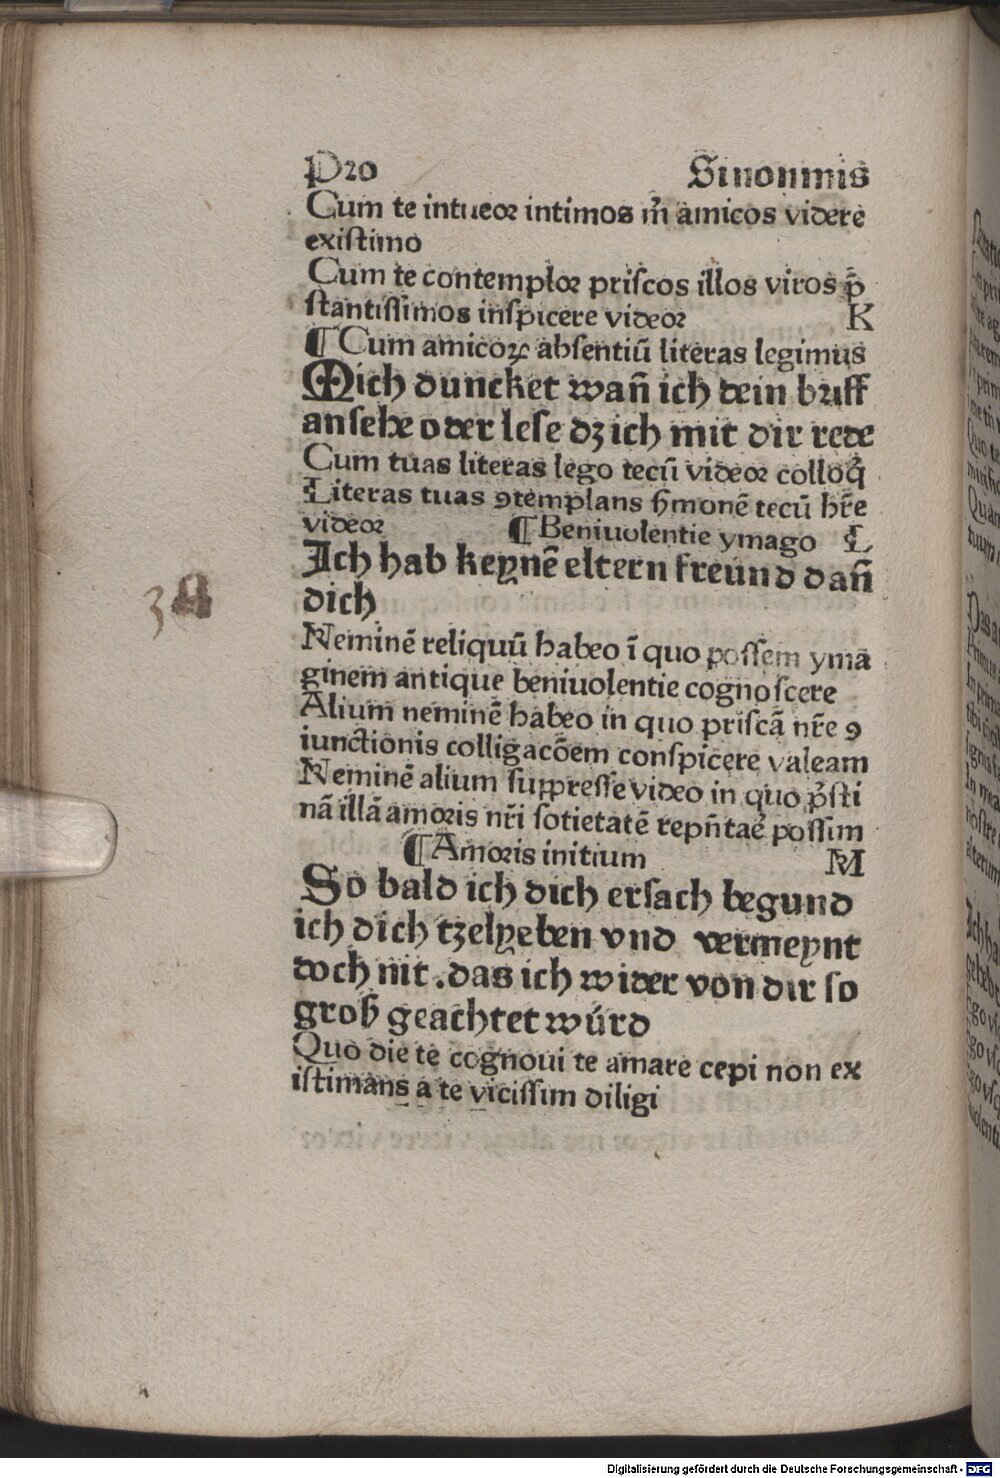 Pro Sinonimis
Cum te intueor intimos m̃ amicos videre
existimo
Cum te contemplor priscos illos viros p̄
stantissimos inspicere videor K
¶ Cum amicoꝝ absentiū literas legimus
Mich duncket wañ ich dein briff
ansehe oder lese dz ich mit dir rede
Cum tuas literas lego tecū videor colloq̃
Literas tuas ꝯtemplans ẜmonē tecū hr̃e
videor ¶ Beniuolentie ymago L
Ich hab keynē eltern freund dañ
dich
38
Neminē reliquū habeo ī quo possem yma
ginem antique beniuolentie cognoscere
Alium neminē habeo in quo priscā nr̃e ꝯ
iunctionis colligacōem conspicere valeam
Neminē alium suppresse video in quo p̃sti
nā illā amoris nr̃i sotietatē repñtae᷑ possim
¶ Amoris initium M
So bald ich dich ersach begund
ich dich tzelyeben vnd vermeynt
doch nit .das ich wider von dir so
groß geachtet wúrd
Quo die te cognoui te amare cepi non ex
istimans a te vicissim diligi
Digitalisierung gefördert durch die Deutsche Forschungsgemeinschaft - DFG